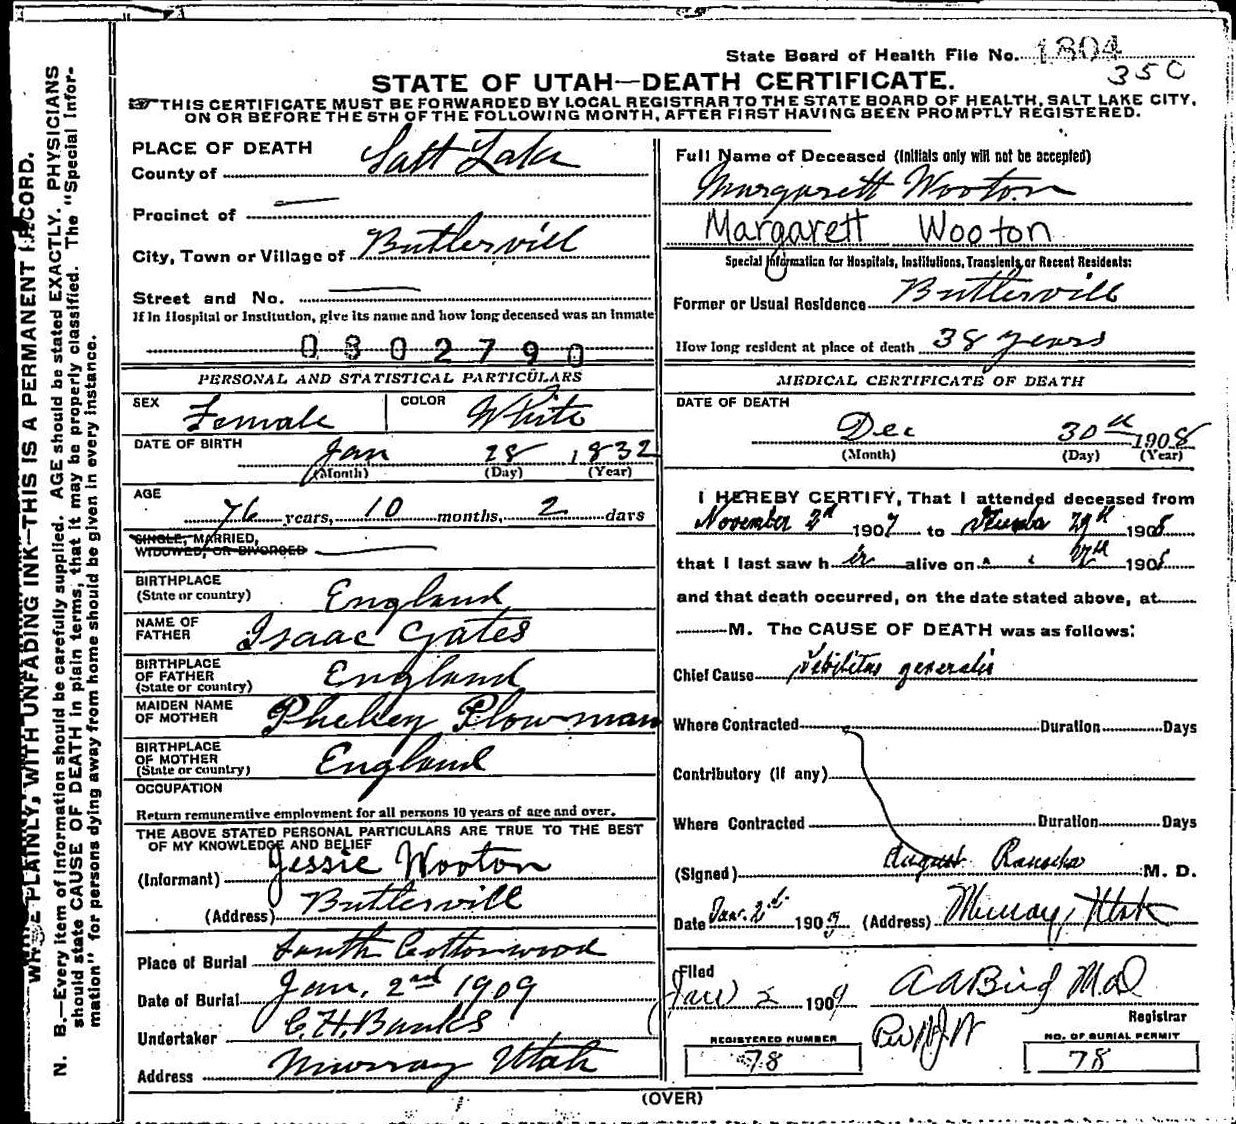 State Board of Health File No. 1804
350
STATE OF UTAH—DEATH CERTIFICATE.
☞THIS CERTIFICATE MUST BE FORWARDED BY LOCAL REGISTRAR TO THE STATE BOARD OF HEALTH, SALT LAKE CITY,
ON OR BEFORE THE 5TH OF THE FOLLOWING MONTH, AFTER FIRST HAVING BEEN PROMPTLY REGISTERED.
PLACE OF DEATH
County of Salt Lake
Precinct of —
City, Town or Village of Butlervill
Street and No. —
If in Hospital or Institution, give its name and how long deceased was an inmate
0302790
PERSONAL AND STATISTICAL PARTICULARS
SEX Female COLOR White
DATE OF BIRTH Jan 28 1832
(Month) (Day) (Year)
AGE
76 years, 10 months, 2 days
SINGLE, MARRIED,
WIDOWED, OR DIVORCED —
BIRTHPLACE
(State or country) England
NAME OF
FATHER Isaac Gates
BIRTHPLACE
OF FATHER
(State or country) England
MAIDEN NAME
OF MOTHER Phebey Plowman
BIRTHPLACE
OF MOTHER
(State or country) England
OCCUPATION
Return remunerative employment for all persons 10 years of age and over.
THE ABOVE STATED PERSONAL PARTICULARS ARE TRUE TO THE BEST
OF MY KNOWLEDGE AND BELIEF
(Informant) Jessie Wooton
(Address) Butlervill
Place of Burial South Cottonwood
Date of Burial Jan. 2nd 1909
Undertaker C. H. Banks
Address Murray Utah
Full Name of Deceased (Initials only will not be accepted)
Margarett Wooton
Margarett Wooton
Special Information for Hospitals, Institutions, Transients, or Recent Residents:
Former or Usual Residence Butlervill
How long resident at place of death 38 years
MEDICAL CERTIFICATE OF DEATH
DATE OF DEATH
Dec 30th 1908
(Month) (Day) (Year)
I HEREBY CERTIFY, That I attended deceased from
November 2d 1907 to 29th 1908
that I last saw her alive on 1908
and that death occurred, on the date stated above, at
M. The CAUSE OF DEATH was as follows:
Chief Cause Debilitas generalis
Where Contracted Duration Days
Contributory (if any)
Where Contracted Duration Days
(Signed) August M. D.
Date Jan. 2d 1909 (Address) Murray, Utah
Filed
Jan 2 1909 A A Bird M.D
Registrar
REGISTERED NUMBER
78
NO. OF BURIAL PERMIT
78
(OVER)
WRITE PLAINLY, WITH UNFADING INK—THIS IS A PERMANENT RECORD.
N. B.—Every item of information should be carefully supplied. AGE should be stated EXACTLY. PHYSICIANS
should state CAUSE OF DEATH in plain terms, that it may be properly classified. The "Special Infor-
mation" for persons dying away from home should be given in every instance.